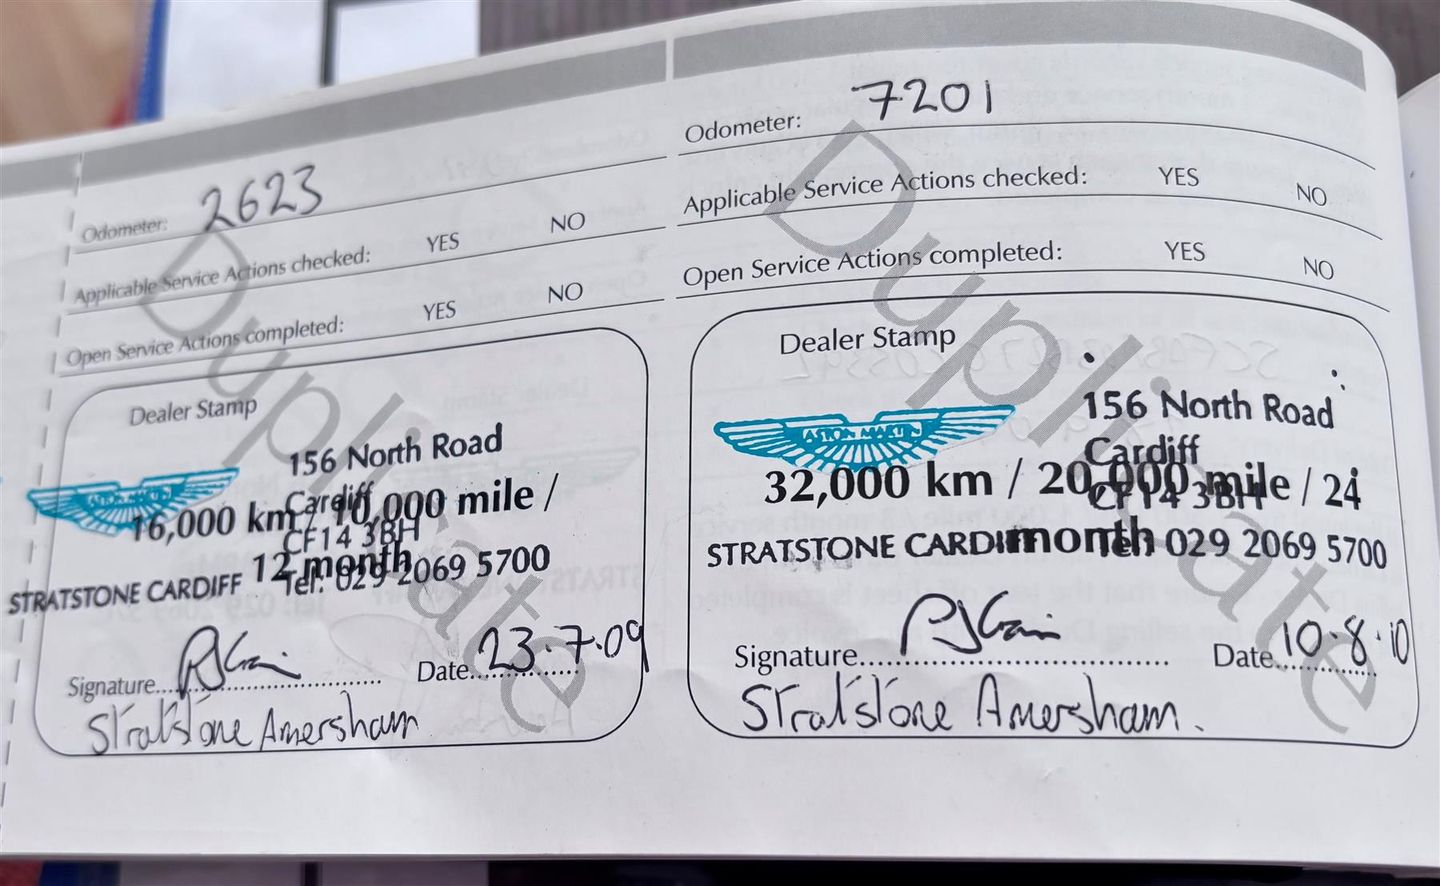 Odometer: 2623
Applicable Service Actions checked: YES NO
Open Service Actions completed: YES NO
Dealer Stamp
ASTON MARTIN
156 North Road
Cardiff
CF14 3BH
16,000 km / 10,000 mile /
12 month
STRATSTONE CARDIFF Tel: 029 2069 5700
Signature Date 23.7.09
Stratstone Amersham
Duplicate
Odometer: 7201
Applicable Service Actions checked: YES NO
Open Service Actions completed: YES NO
Dealer Stamp
ASTON MARTIN
156 North Road
Cardiff
CF14 3BH
32,000 km / 20,000 mile / 24
month
STRATSTONE CARDIFF Tel: 029 2069 5700
Signature Date 10.8.10
Stratstone Amersham.
Duplicate